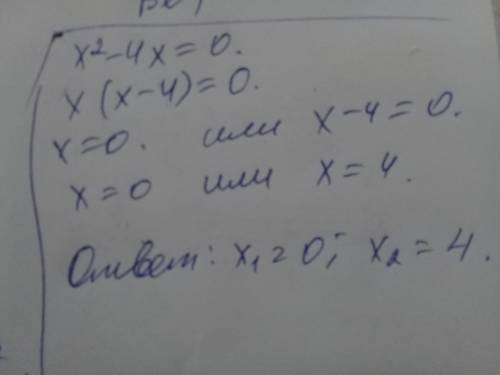 x²-4x=0.
x(x-4)=0.
x=0. или x-4=0.
x=0 или x=4.
Ответ: x₁=0; x₂=4.